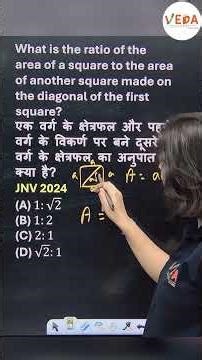 VEDA
What is the ratio of the
area of a square to the area
of another square made on
the diagonal of the first
square?
एक वर्ग के क्षेत्रफल और
वर्ग के विकर्ण पर बने दूसरे
वर्ग के क्षेत्रफल का अनुपात
क्या है?
a a A = a
JNV 2024
(A) 1:√2
A =
(B) 1:2
(C) 2:1
(D) √2:1